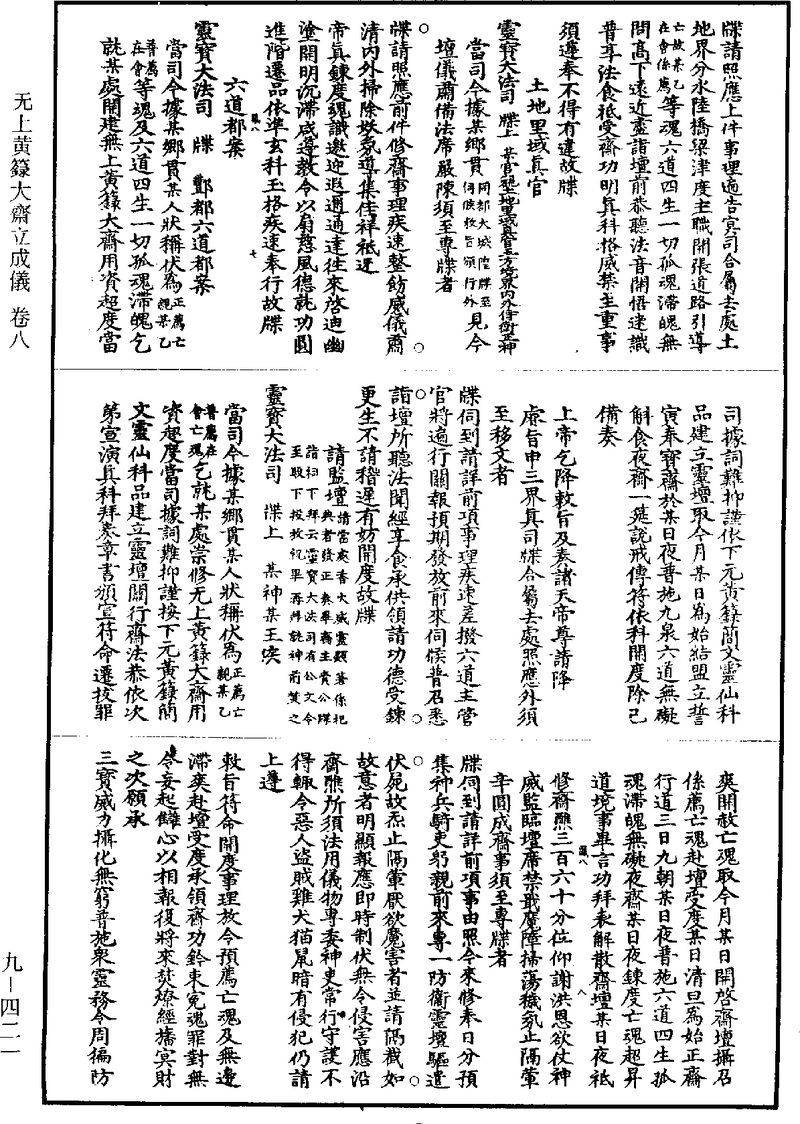 牒請照應上件事理遍告冥司合屬去處土
地界分水陸橋梁津度主職開張道路引導
亡故某乙在會係薦等魂六道四生一切孤魂滯魄無
問高下遠近盡詣壇前恭聽法音開悟迷識
普享法食祗受齋功明真科格威禁主重事
須遵奉不得有違故牒
土地里域真官
靈寶大法司 牒上
當司今據某鄉貫 見今
壇儀肅備法席嚴陳須至專牒者
牒請照應前件修齋事理疾速整飭威儀肅
清內外掃除妖氛導集佳祥祗迓
帝真鍊度魂識邀迎遐邇通達往來啓迪幽
塗開明沉滯咸導教令以扇慈風德託功圓
進階遷品依準玄科玉格疾速奉行故牒
六道都案
靈寶大法司 牒 酆都六道都案
當司今據某鄉貫某人狀稱伏為正薦亡親某乙
普薦在會等魂及六道四生一切孤魂滯魄乞
就某處開建無上黃籙大齋用資超度當
司據詞難抑謹依下元黃籙簡文靈仙科
品建立靈壇取今月某日為始結盟立誓
寅奉寶齋於某日夜普施九泉六道無礙
斛食夜齋一筵說戒傳符依科開度除已
備奏
上帝乞降敕旨及奏諸天帝尊請降
睿旨申三界真司牒合屬去處照應外須
至移文者
牒伺到請詳前項事理疾速差撥六道主管
官將遍行關報預期發放前來伺候普召悉
詣壇所聽法聞經享食承供領請功德受鍊
更生不請稽遲有妨開度故牒
請監壇
靈寶大法司 牒上 某神某王突
當司今據某鄉貫某人狀稱伏為正薦亡親某乙
普薦在會亡魂乞就某處崇修无上黃籙大齋用
資超度當司據詞難抑謹按下元黃籙簡
文靈仙科品建立靈壇關行齋法恭依次
第宣演真科拜奏章書頒宣符命遷拔罪
爽開赦亡魂取今月某日開啓齋壇攝召
係薦亡魂赴壇受度某日清旦為始正齋
行道三日九朝某日夜普施六道四生孤
魂滯魄無礙夜齋某日夜鍊度亡魂超昇
道境事畢言功拜表解散齋壇某日夜祗
修齋醮三百六十分位仰謝洪恩欲仗神
威監臨壇席禁戢魔障掃蕩穢氛止隔葷
辛圓成齋事須至專牒者
牒伺到請詳前項事由照今來修奉日分預
集神兵騎吏躬親前來專一防衛靈壇驅遣
伏屍故炁止隔葷厭欲魔害者並請隔截如
故意者明顯報應即時制伏無令侵害應沿
齋醮所須法用儀物專委神吏常行守護不
得輒令惡人盜賊雞犬猫鼠暗有侵犯仍請
上遵
敕旨符命開度事理放令預薦亡魂及無邊
滯爽赴壇受度承領齋功鈐束冤魂罪對無
令妄起讎心以相報復將來焚燎經旛冥財
之次願承
三寶威力攝化無窮普施衆靈務令周徧防
无上黃籙大齋立成儀 卷八
九－四二一